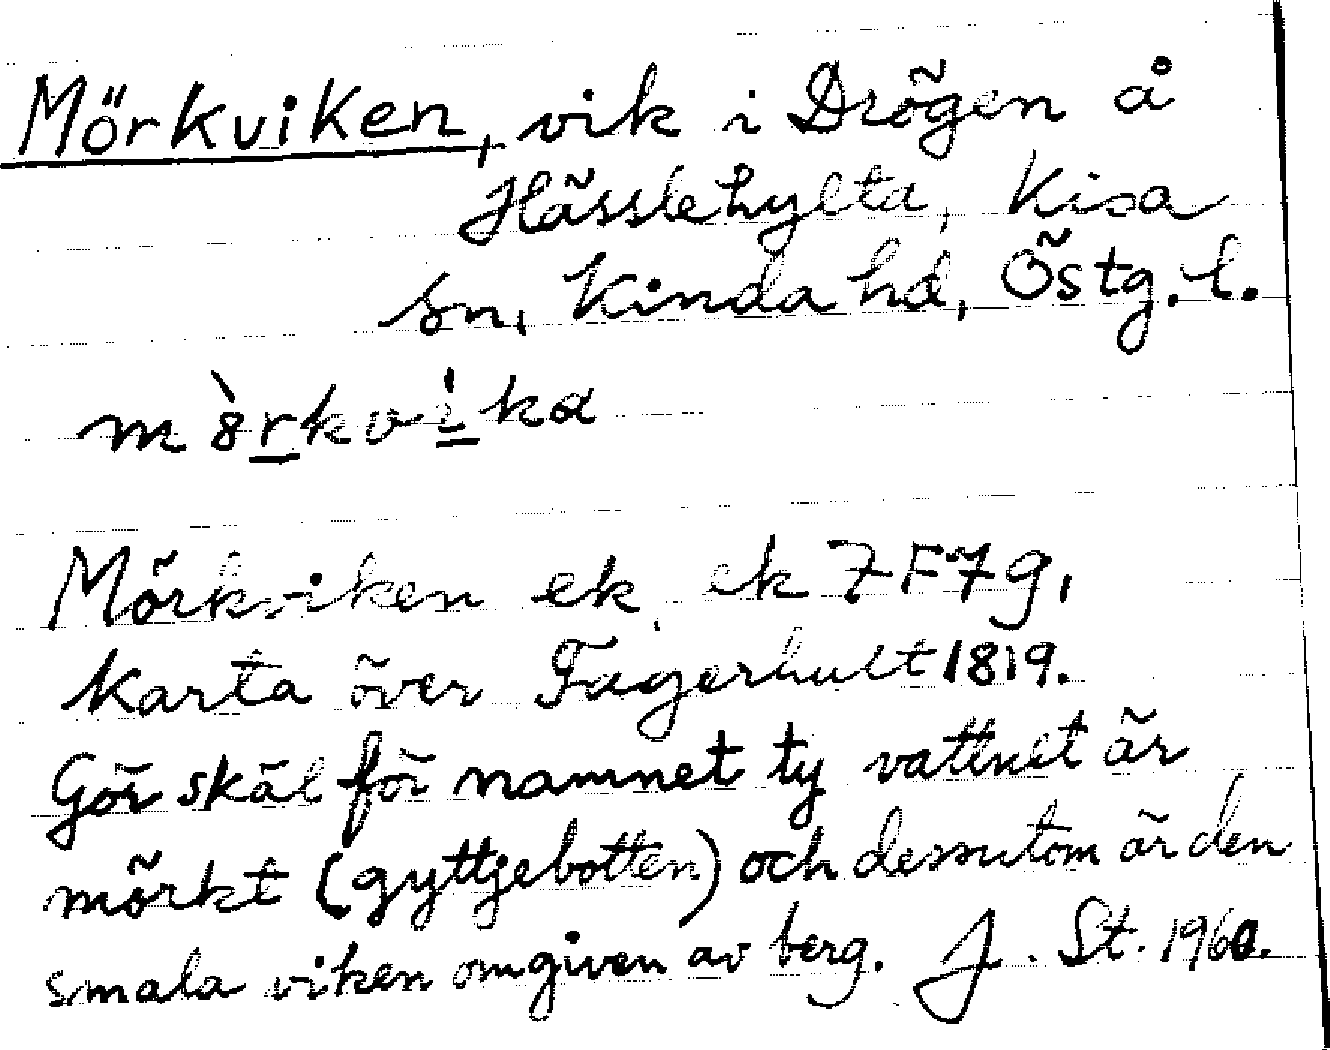 Mörkviken, vik i Drögen å
Hässlehylta, Kisa
sn, Kinda hd, Östg. l.
m ȍrkvi̍ka
Mörkviken ek ek 7F7g,
karta över Fagerhult 1819.
Gör skäl för namnet ty vattnet är
mörkt (gyttjebotten) och dessutom är den
smala viken omgiven av berg. J. St. 1960.